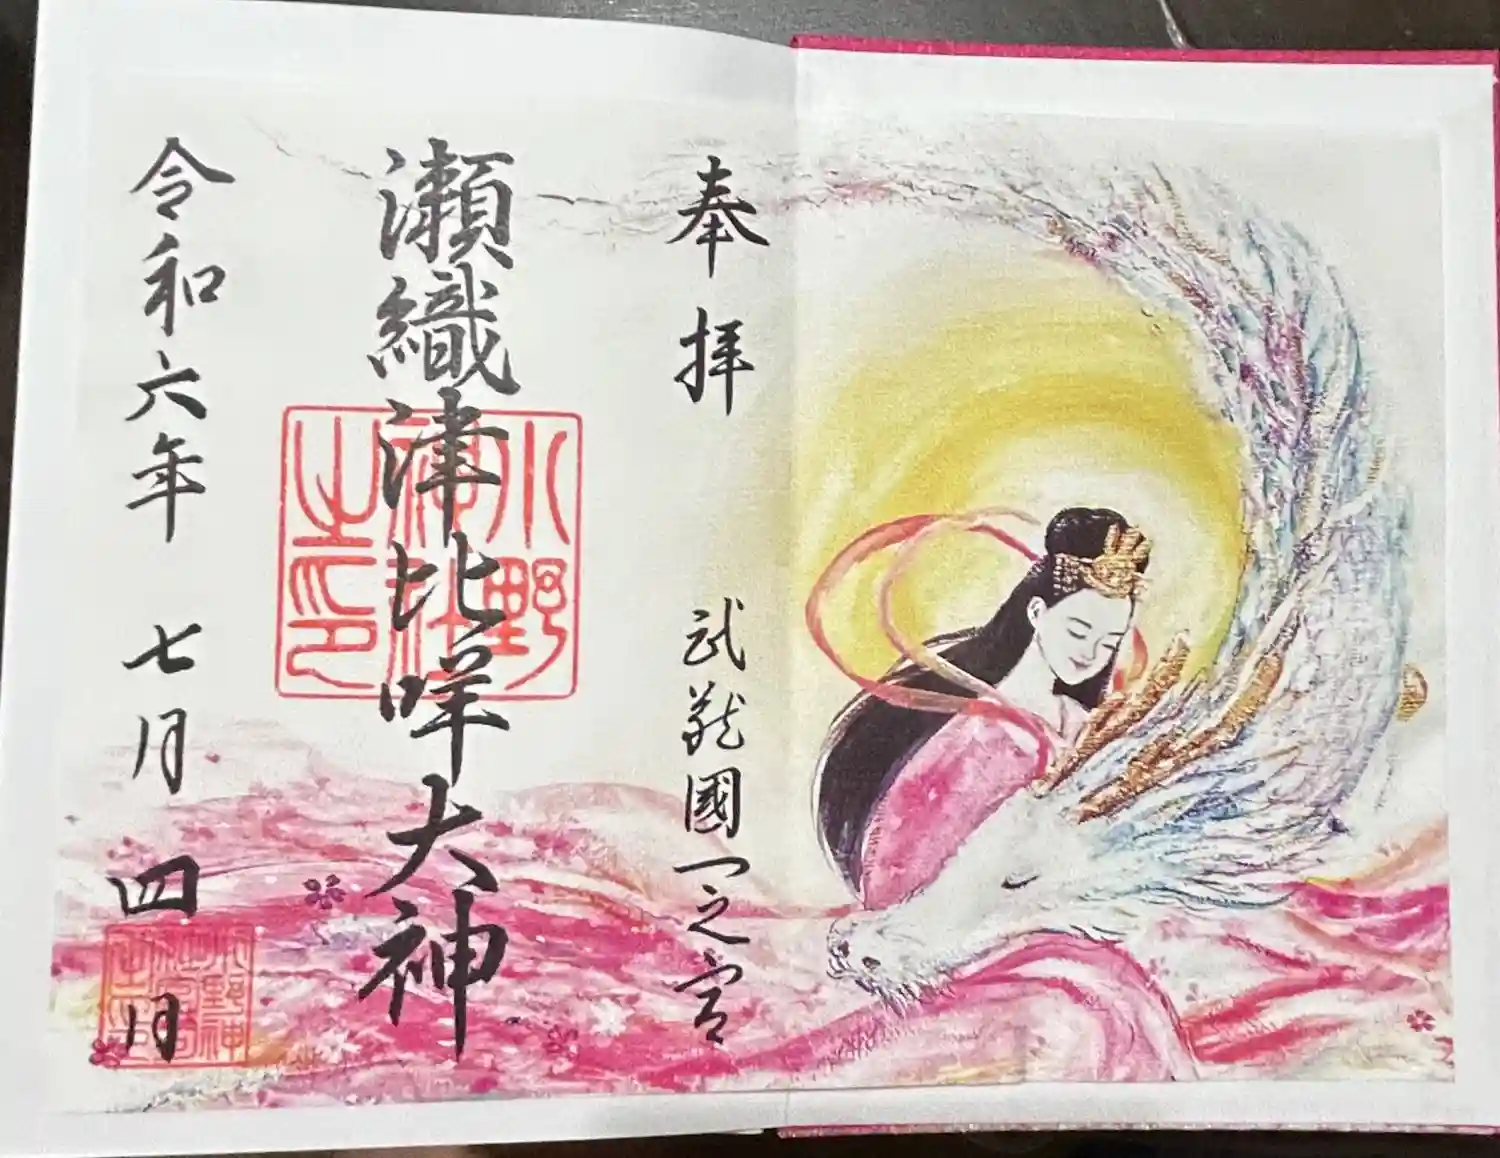 奉拝
武蔵國一之宮
瀬織津比咩大神
小野神社之印
令和六年 七月 四日